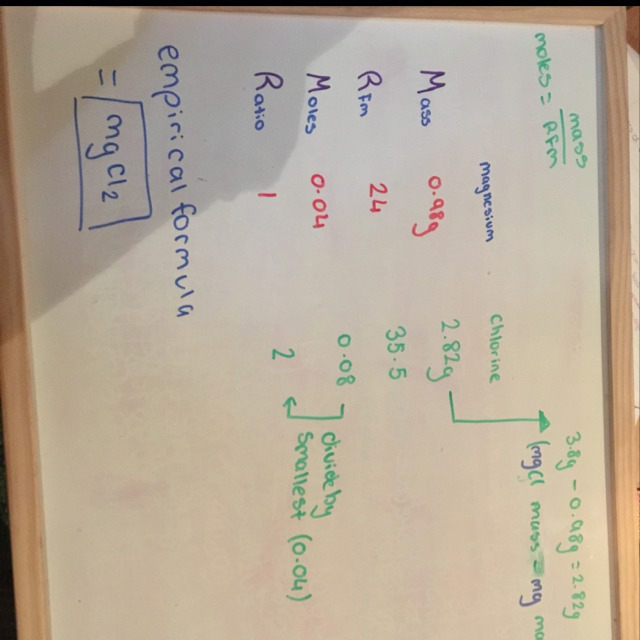 moles = mass
RFm
3.8g - 0.98g = 2.82g
(mgCl mass - mg
magnesium chlorine
Mass 0.98g 2.82g
RFm 24 35.5
Moles 0.04 0.08
Ratio 1 2
divide by
smallest (0.04)
empirical formula
= mgCl2